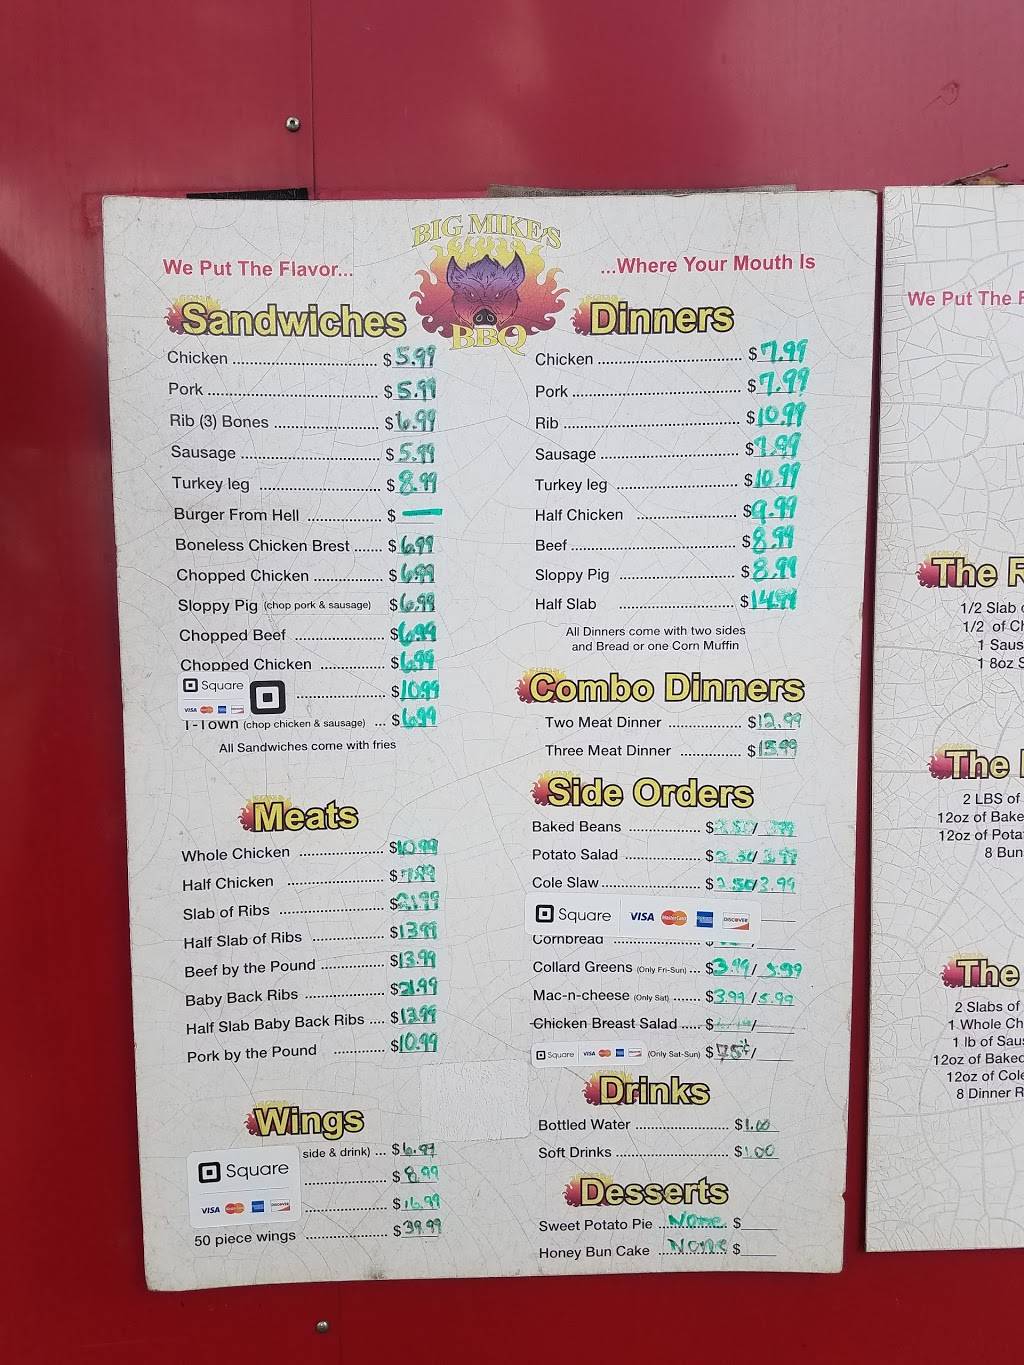 BIG MIKE'S
BBQ
We Put The Flavor...
...Where Your Mouth Is
Sandwiches
Chicken ........ $ 5.99
Pork ........ $ 5.99
Rib (3) Bones ........ $ 6.99
Sausage ........ $ 5.99
Turkey leg ........ $ 8.99
Burger From Hell ........ $ —
Boneless Chicken Brest ....... $ 6.99
Chopped Chicken ........ $ 6.99
Sloppy Pig (chop pork & sausage) $ 6.99
Chopped Beef ........ $ 6.99
Chopped Chicken ........ $ 6.99
Square
VISA
........ $ 10.99
T-Town (chop chicken & sausage) ... $ 6.99
All Sandwiches come with fries
Meats
Whole Chicken ........ $ 10.99
Half Chicken ........ $ 7.99
Slab of Ribs ........ $ 21.99
Half Slab of Ribs ........ $ 13.99
Beef by the Pound ........ $ 13.99
Baby Back Ribs ........ $ 21.99
Half Slab Baby Back Ribs .... $ 13.99
Pork by the Pound ........ $ 10.99
Wings
side & drink) ... $ 6.97
........ $ 8.99
........ $ 16.99
Square
VISA MasterCard DISCOVER
50 piece wings ........ $ 39.99
Dinners
Chicken ........ $ 7.99
Pork ........ $ 7.99
Rib ........ $ 10.99
Sausage ........ $ 7.99
Turkey leg ........ $ 10.99
Half Chicken ........ $ 9.99
Beef ........ $ 8.99
Sloppy Pig ........ $ 8.99
Half Slab ........ $ 14.99
All Dinners come with two sides
and Bread or one Corn Muffin
Combo Dinners
Two Meat Dinner ........ $ 12.99
Three Meat Dinner ........ $ 15.99
Side Orders
Baked Beans ........ $ 2.50/ 3.99
Potato Salad ........ $ 2.50/ 3.99
Cole Slaw ........ $ 2.50/ 3.99
Square VISA MasterCard DISCOVER
Cornbread ........
Collard Greens (Only Fri-Sun) ... $ 3.99/ 5.99
Mac-n-cheese (Only Sat) ....... $ 3.99 / 5.99
Chicken Breast Salad ..... $
Square VISA (Only Sat-Sun) $ 75¢/
Drinks
Bottled Water ........ $ 1.00
Soft Drinks ........ $ 1.00
Desserts
Sweet Potato Pie None $
Honey Bun Cake None $
We Put The F
The R
1/2 Slab
1/2 of Ch
1 Saus
1 8oz S
The
2 LBS of
12oz of Bake
12oz of Pota
8 Bun
The
2 Slabs of
1 Whole Ch
1 lb of Saus
12oz of Baked
12oz of Cole
8 Dinner R